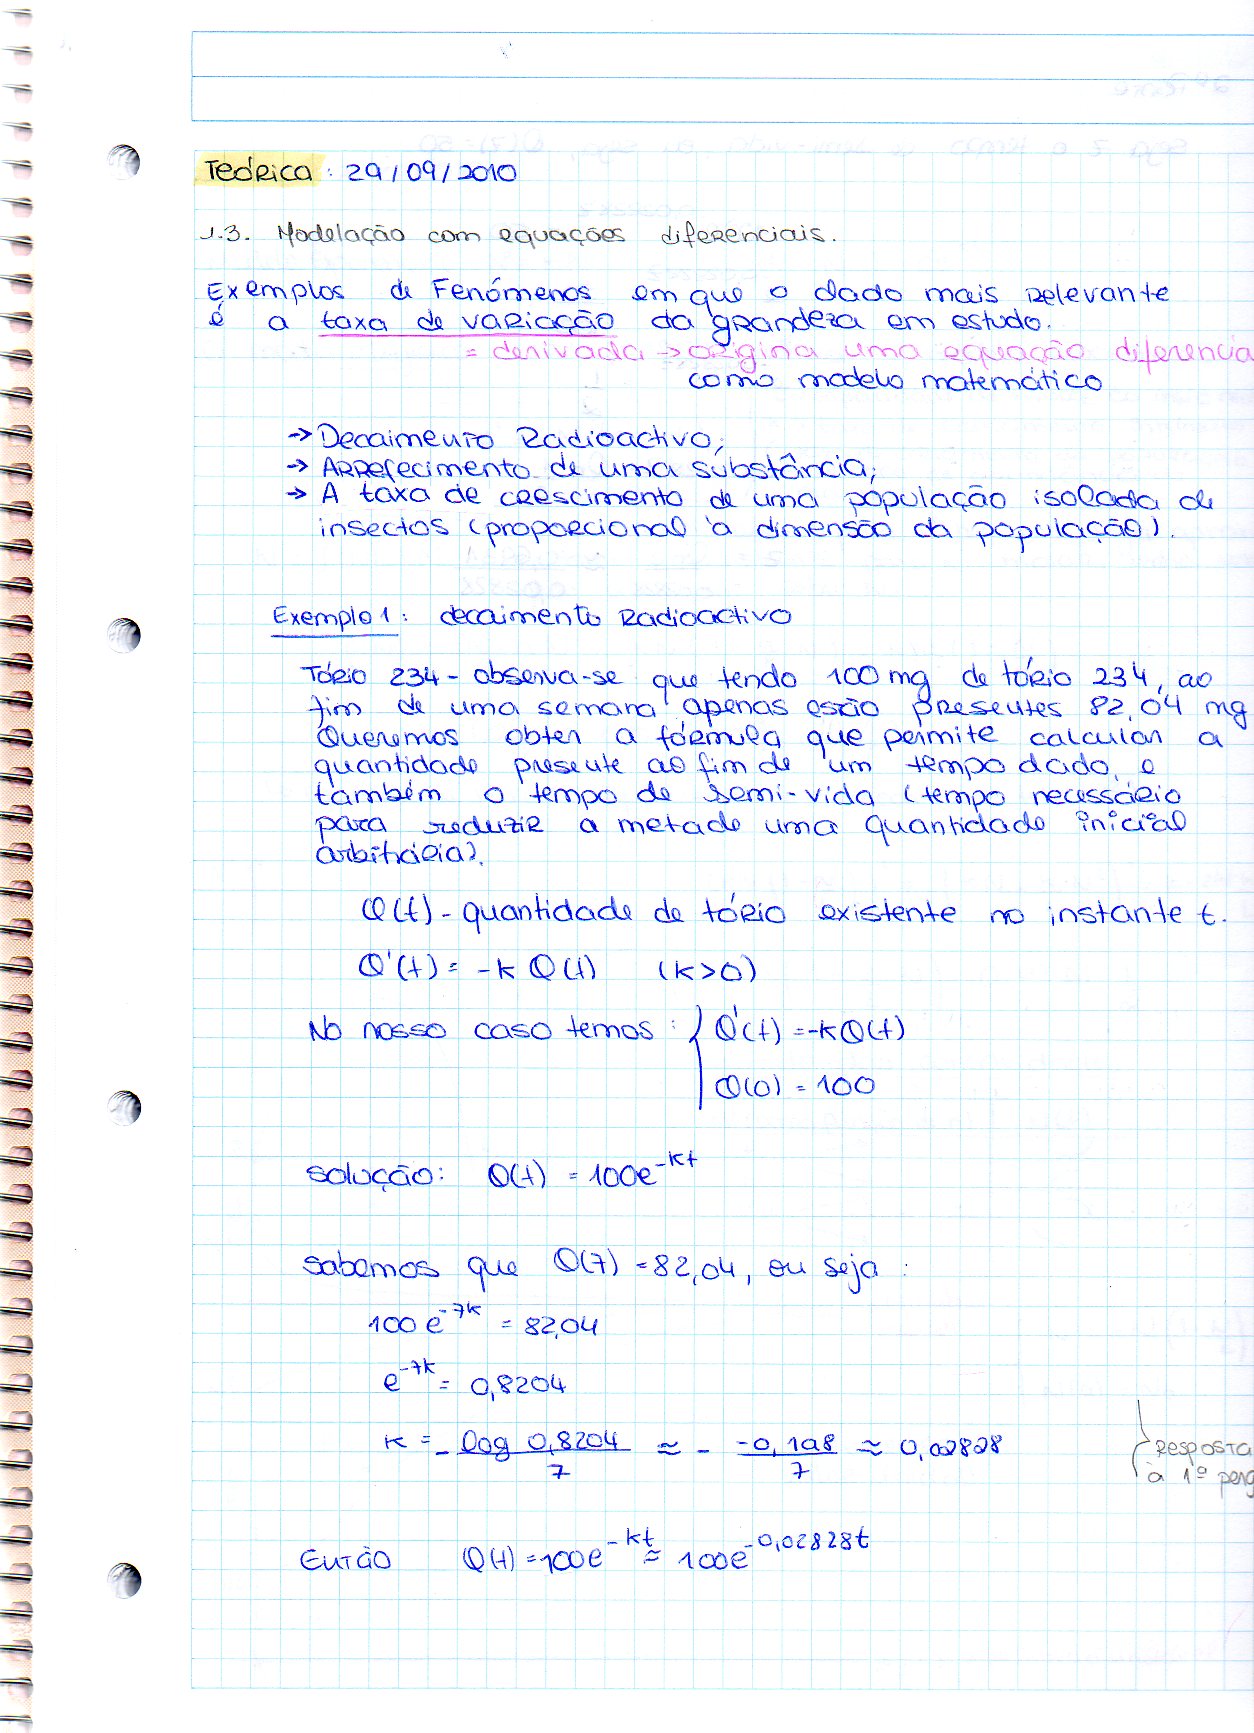 Teórica: 29/09/2010
1.3. Modelação com equações diferenciais.
Exemplos de Fenómenos em que o dado mais relevante
é a taxa de variação da grandeza em estudo.
= derivada → origina uma equação diferencia
como modelo matemático
→ Decaimento Radioactivo;
→ Arrefecimento de uma substância;
→ A taxa de crescimento de uma população isolada de
insectos (proporcional à dimensão da população).
Exemplo 1: decaimento Radioactivo
Tório 234 - observa-se que tendo 100 mg de tório 234, ao
fim de uma semana apenas estão presentes 82,04 mg
Queremos obter a fórmula que permite calcular a
quantidade presente ao fim de um tempo dado, e
também o tempo de semi-vida (tempo necessário
para reduzir a metade uma quantidade inicial
arbitrária).
Q(t) - quantidade de tório existente no instante t.
Q'(t) = -k Q(t) (k>0)
No nosso caso temos: { Q'(t) = -kQ(t)
Q(0) = 100
solução: Q(t) = 100e^{-kt}
sabemos que Q(7) = 82,04, ou seja:
100 e^{-7k} = 82,04
e^{-7k} = 0,8204
k = - log 0,8204 / 7 ≈ - -0,198 / 7 ≈ 0,02828
} Resposta
à 1ª perg
Então Q(t) = 100e^{-kt} ≈ 100e^{-0,02828t}